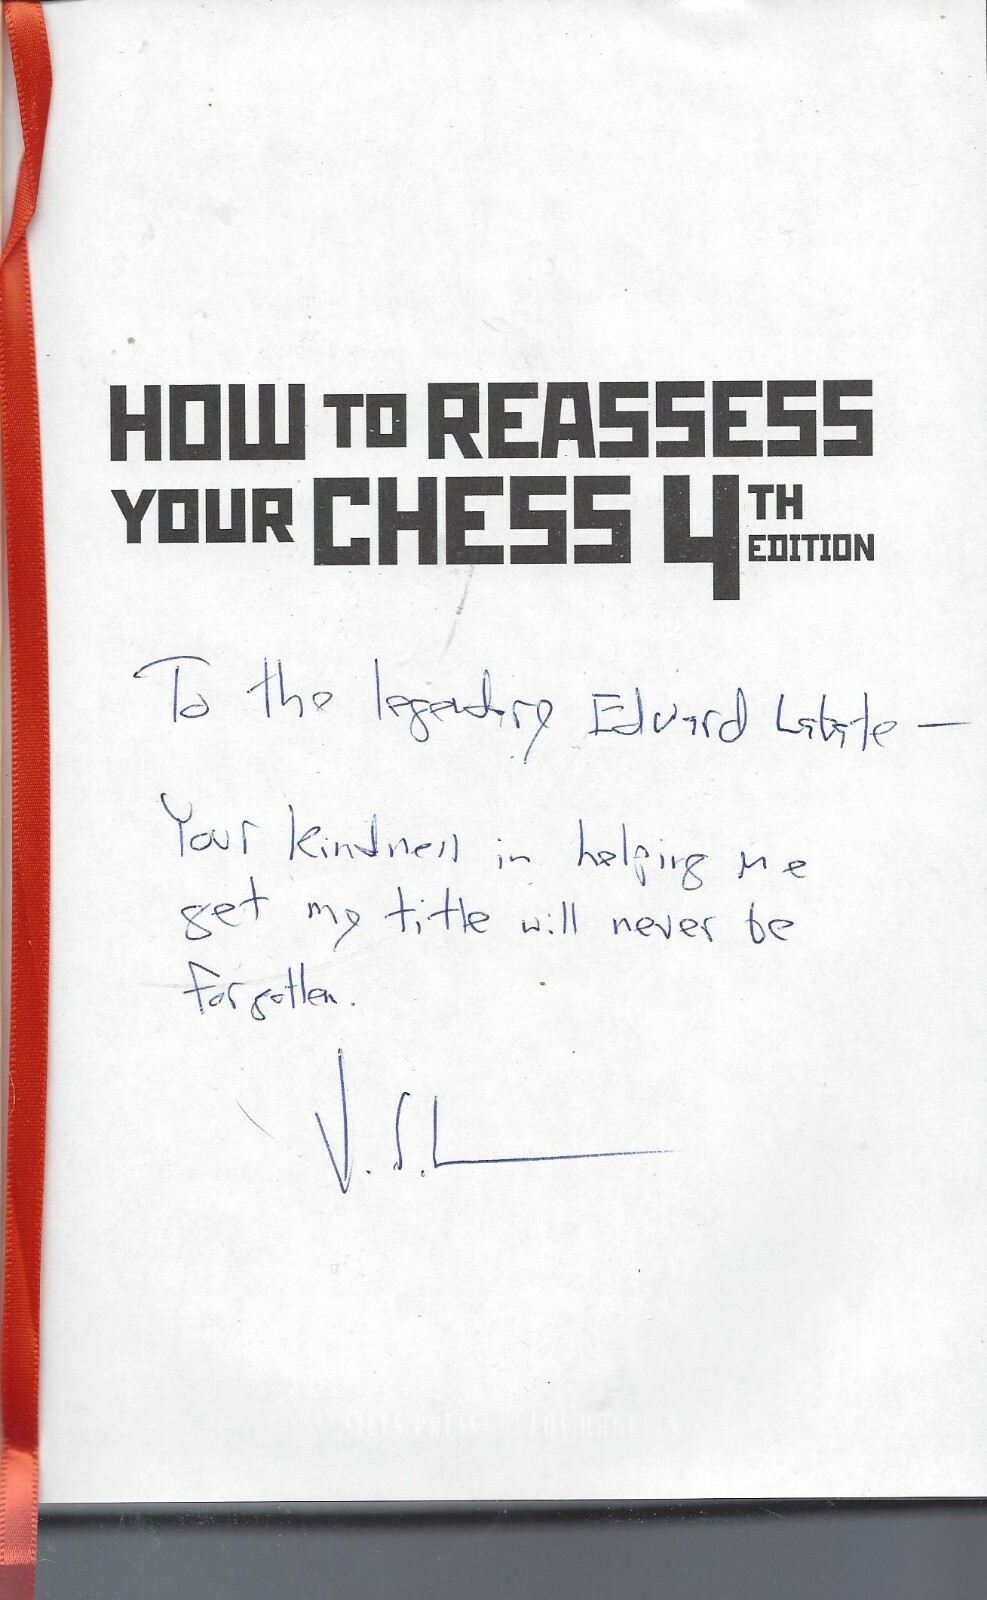 HOW TO REASSESS
YOUR CHESS 4TH
EDITION
To the legendary Edward Labate —
Your kindness in helping me
get my title will never be
forgotten.
J. S.